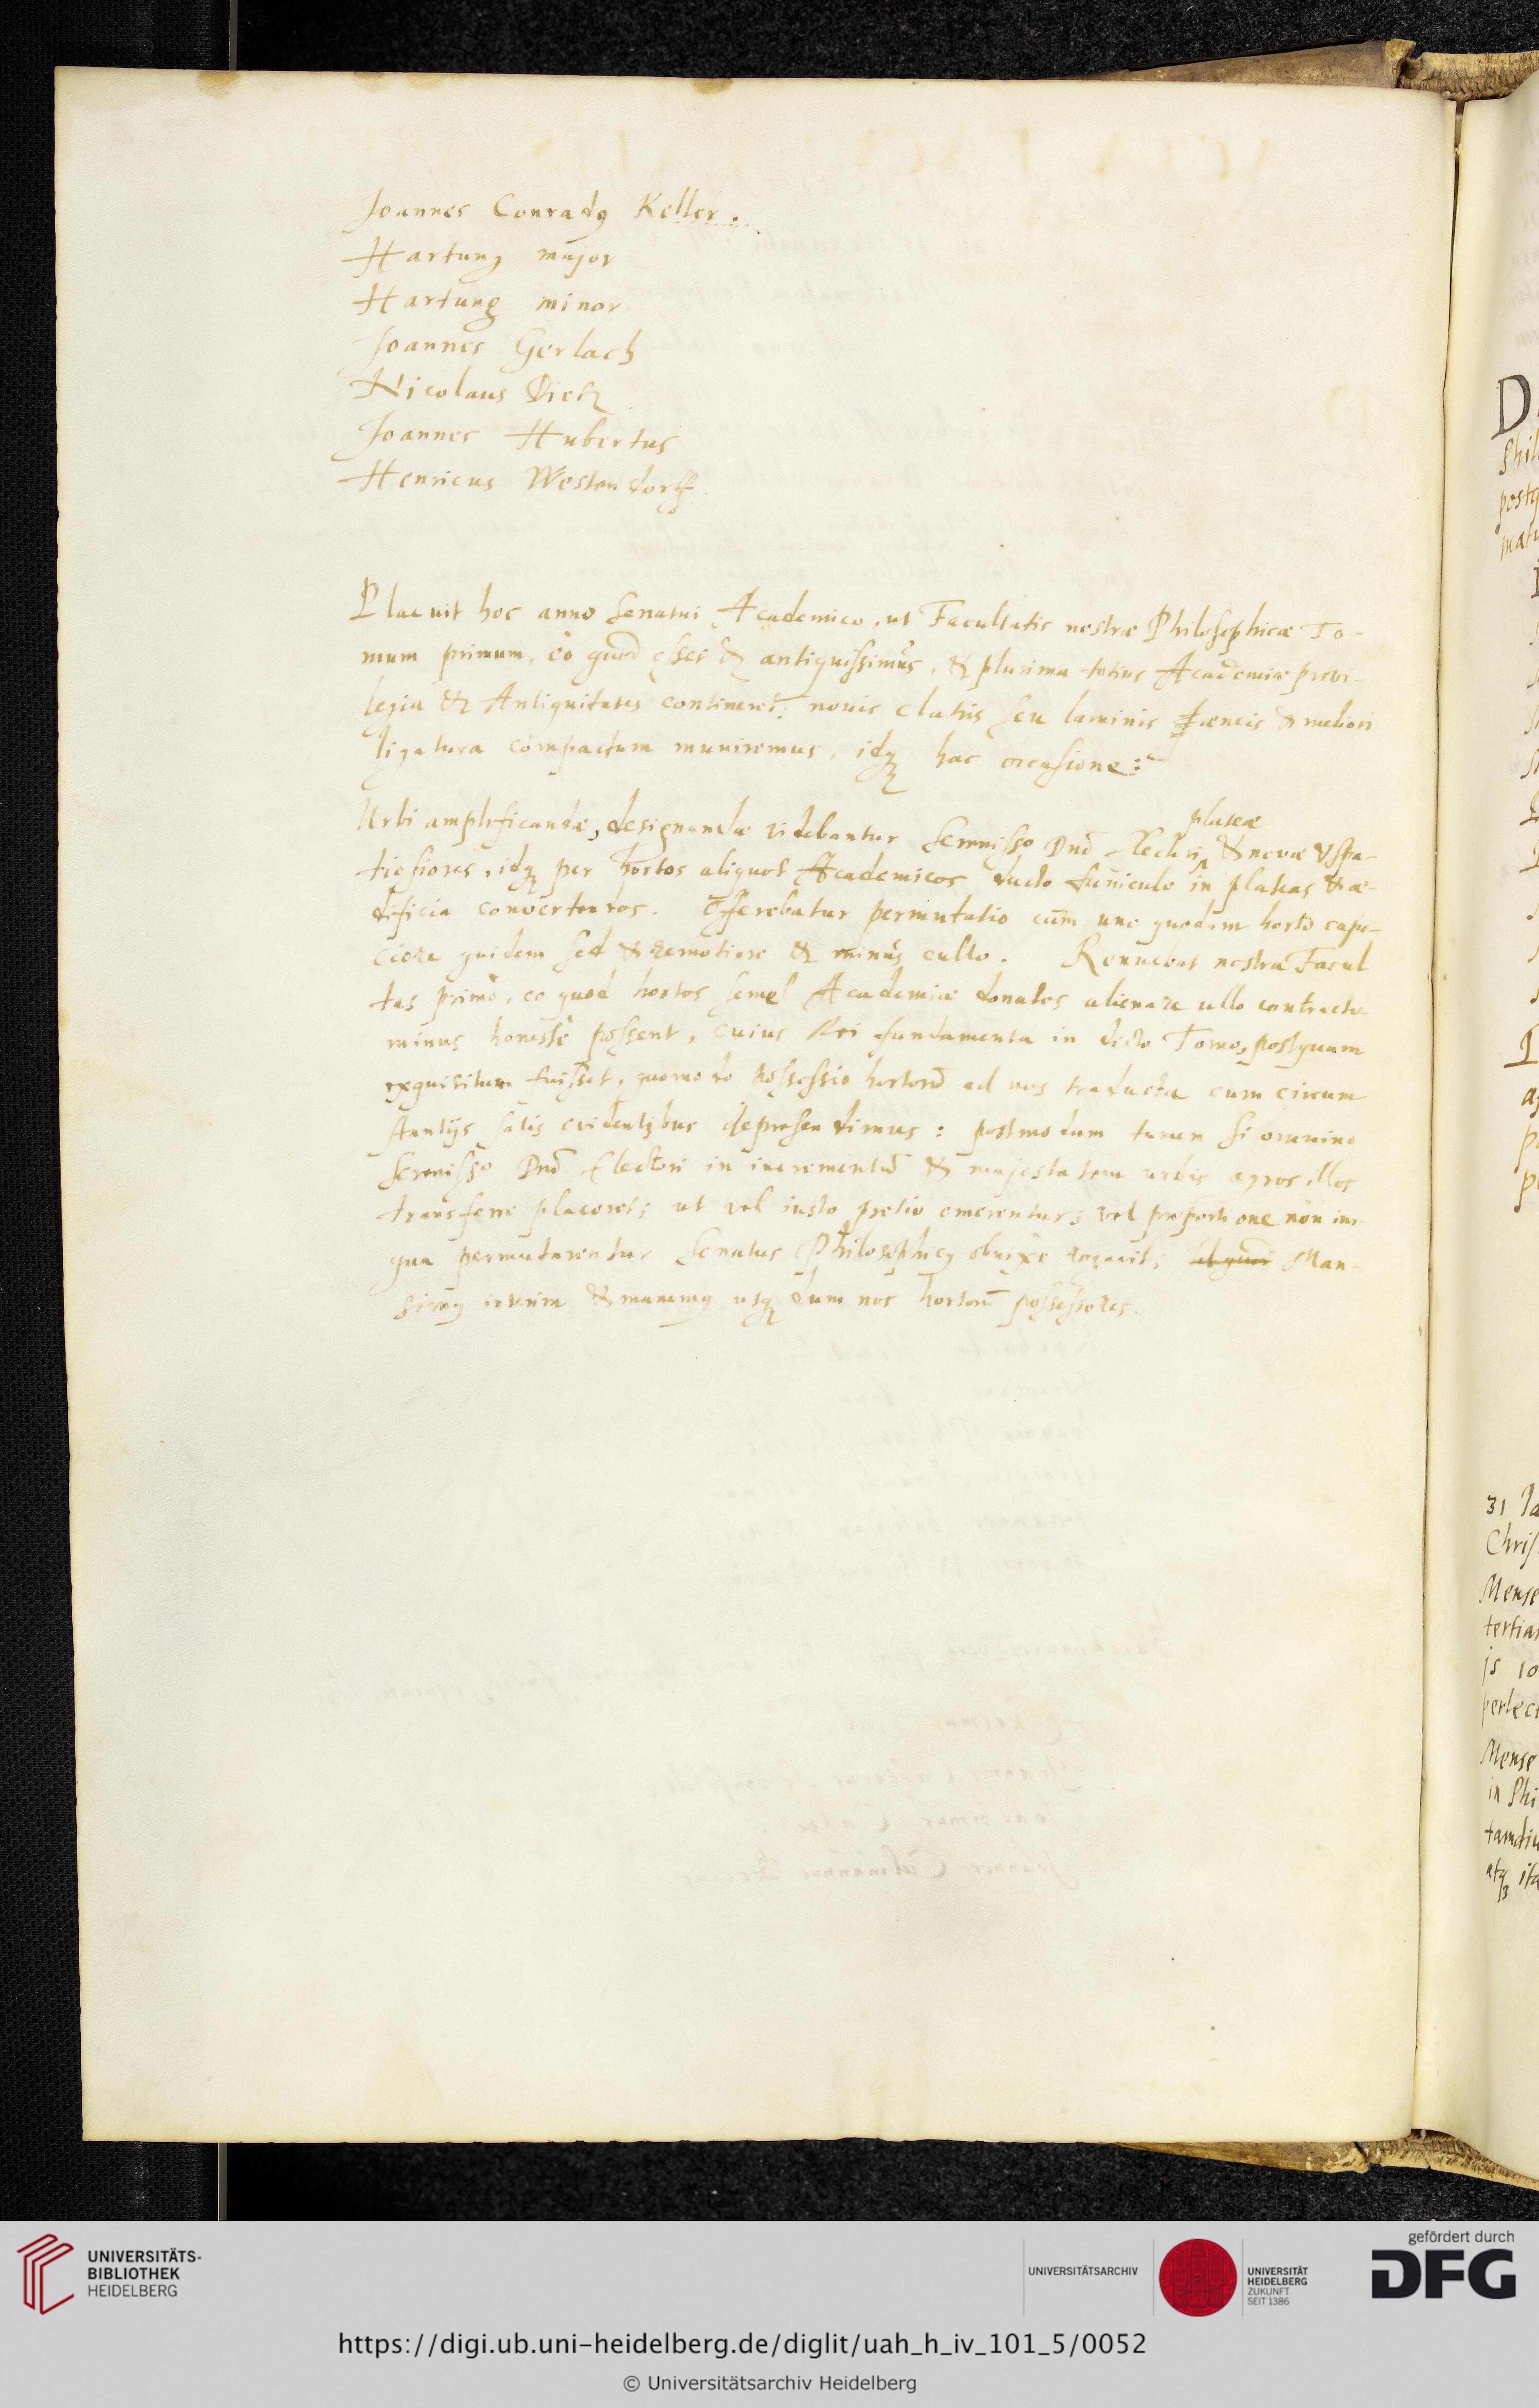 Joannes Conradꝯ Keller.
Hartung major
Hartung minor
Joannes Gerlach
Nicolaus Dietz
Joannes Hubertus
Henricus Westendorff.
Placuit hoc anno Senatui Academico, ut Facultatis nostræ Philosophicæ To-
mum primum, eò quod esset & antiquissimus, & plurima totius Academiæ privi-
legia & Antiquitates contineret, novis clatris seu laminis æneis & meliori
ligatura compactum muniremus, idqꝫ hac occasione:
plateæ
Urbi amplificandæ, designandæ videbantur Serenisso Dnō Electori & novæ & spa-
tiosiores, idqꝫ per hortos aliquot Academicos ducto funiculo in plateas & æ-
dificia convertendos. Offerebatur permutatio cum uno quodam horto capa-
ciore quidem sed & remotiore & minùs culto. Renuebat nostra Facul
tas primò, eo quod hortos semel Academiæ donatos alienare ullo contractu
minus honestè possent, cuius Rei fundamenta in dicto Tomo, postquam
exquisitum fuisset, quomodo possessio hortorū ad nos traducta cum circum
stantijs satis evidentibus deprehendimus: postmodum tamen si omnino
Serenisso Dnō Electori in incrementū & majestatem urbis agros illos
transferre placeret; ut vel iusto pretio emerentur; vel proportione non ini-
qua permutarentur Senatus Philosophicꝯ obnixè rogavit; Man-
simꝯ interim & manemꝯ usqꝫ dum nos hortorū possessores.
D
Phil
postq
matu
31 Ja
Chris
Mense
tertia
js 10
perlec
Mense
in Phi
tamdiu
atqꝫ ita
UNIVERSITÄTS-
BIBLIOTHEK
HEIDELBERG
UNIVERSITÄTSARCHIV
UNIVERSITÄT
HEIDELBERG
ZUKUNFT
SEIT 1386
gefördert durch
DFG
https://digi.ub.uni-heidelberg.de/diglit/uah_h_iv_101_5/0052
© Universitätsarchiv Heidelberg